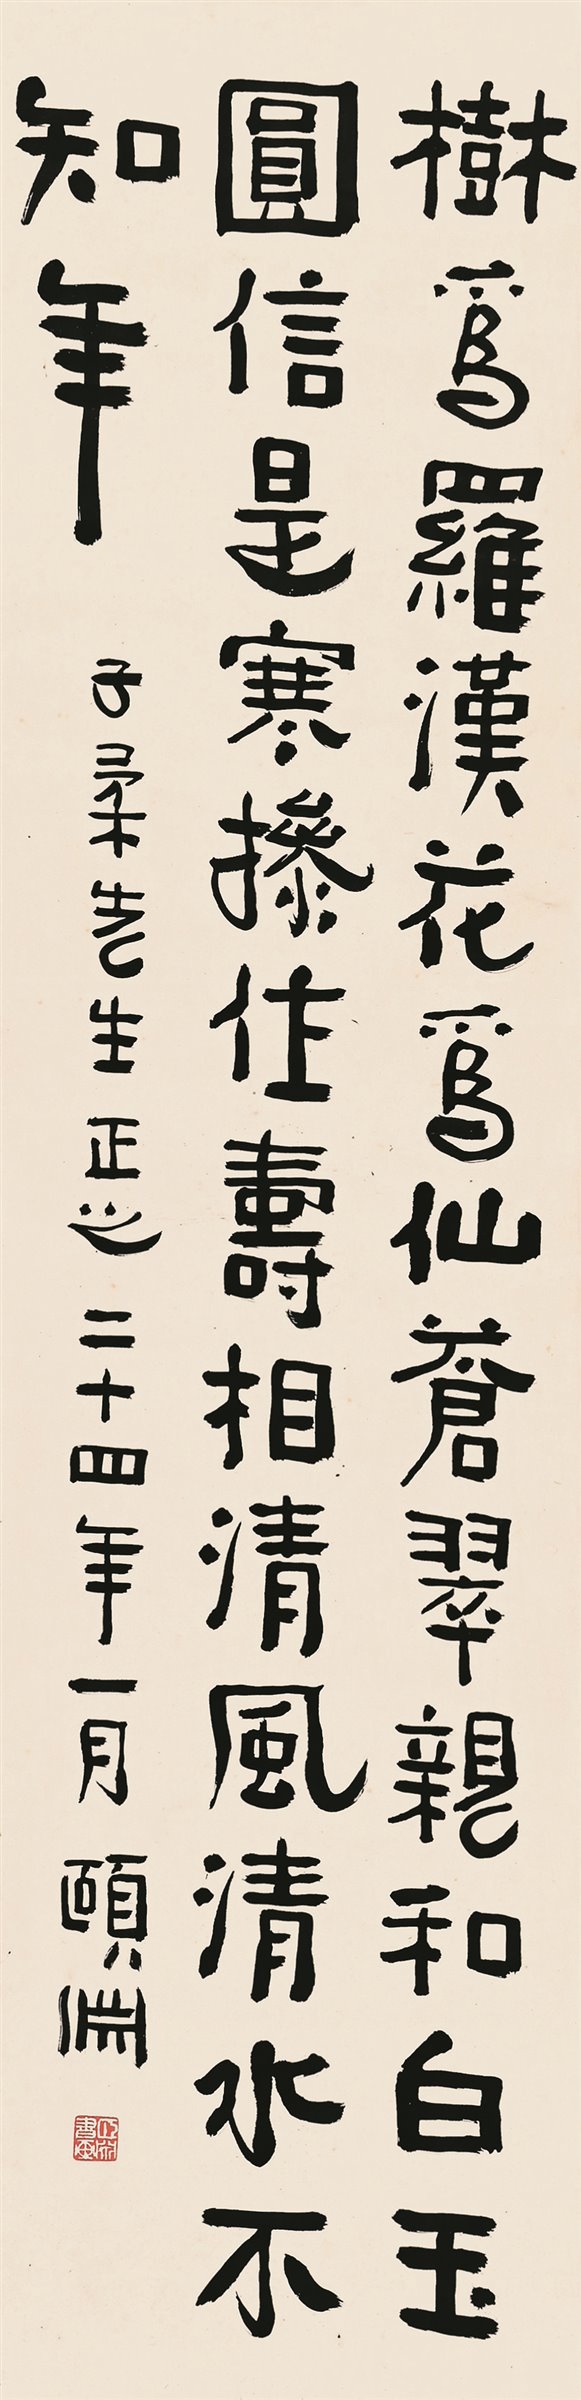 樹爲羅漢花爲仙蒼翠親和白玉
圓信是寒操住壽相清風清水不
知年
子柔先生正之 二十四年一月 頤淵